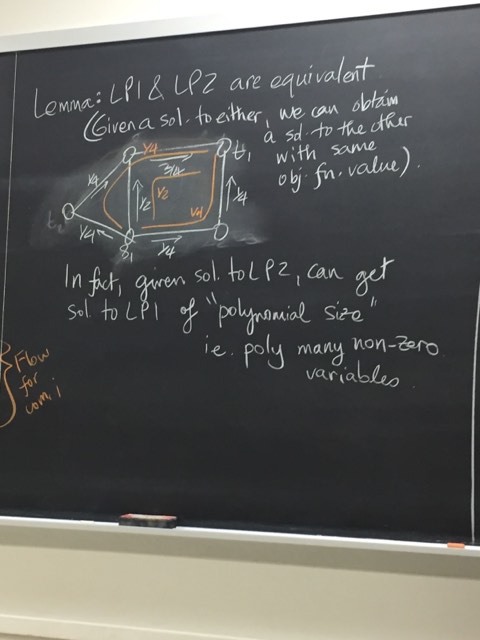 Lemma: LP1 & LP2 are equivalent.
(Given a sol. to either, we can obtain
a sol. to the other
with same
obj. fn. value).
1/4
t1
1/4
3/4
1/2
1/2
1/4
1/4
1/4
s1
1/4
In fact, given sol. to LP2, can get
sol. to LP1 of "polynomial size"
i.e. poly many non-zero
variables.
Flow
for
com. i